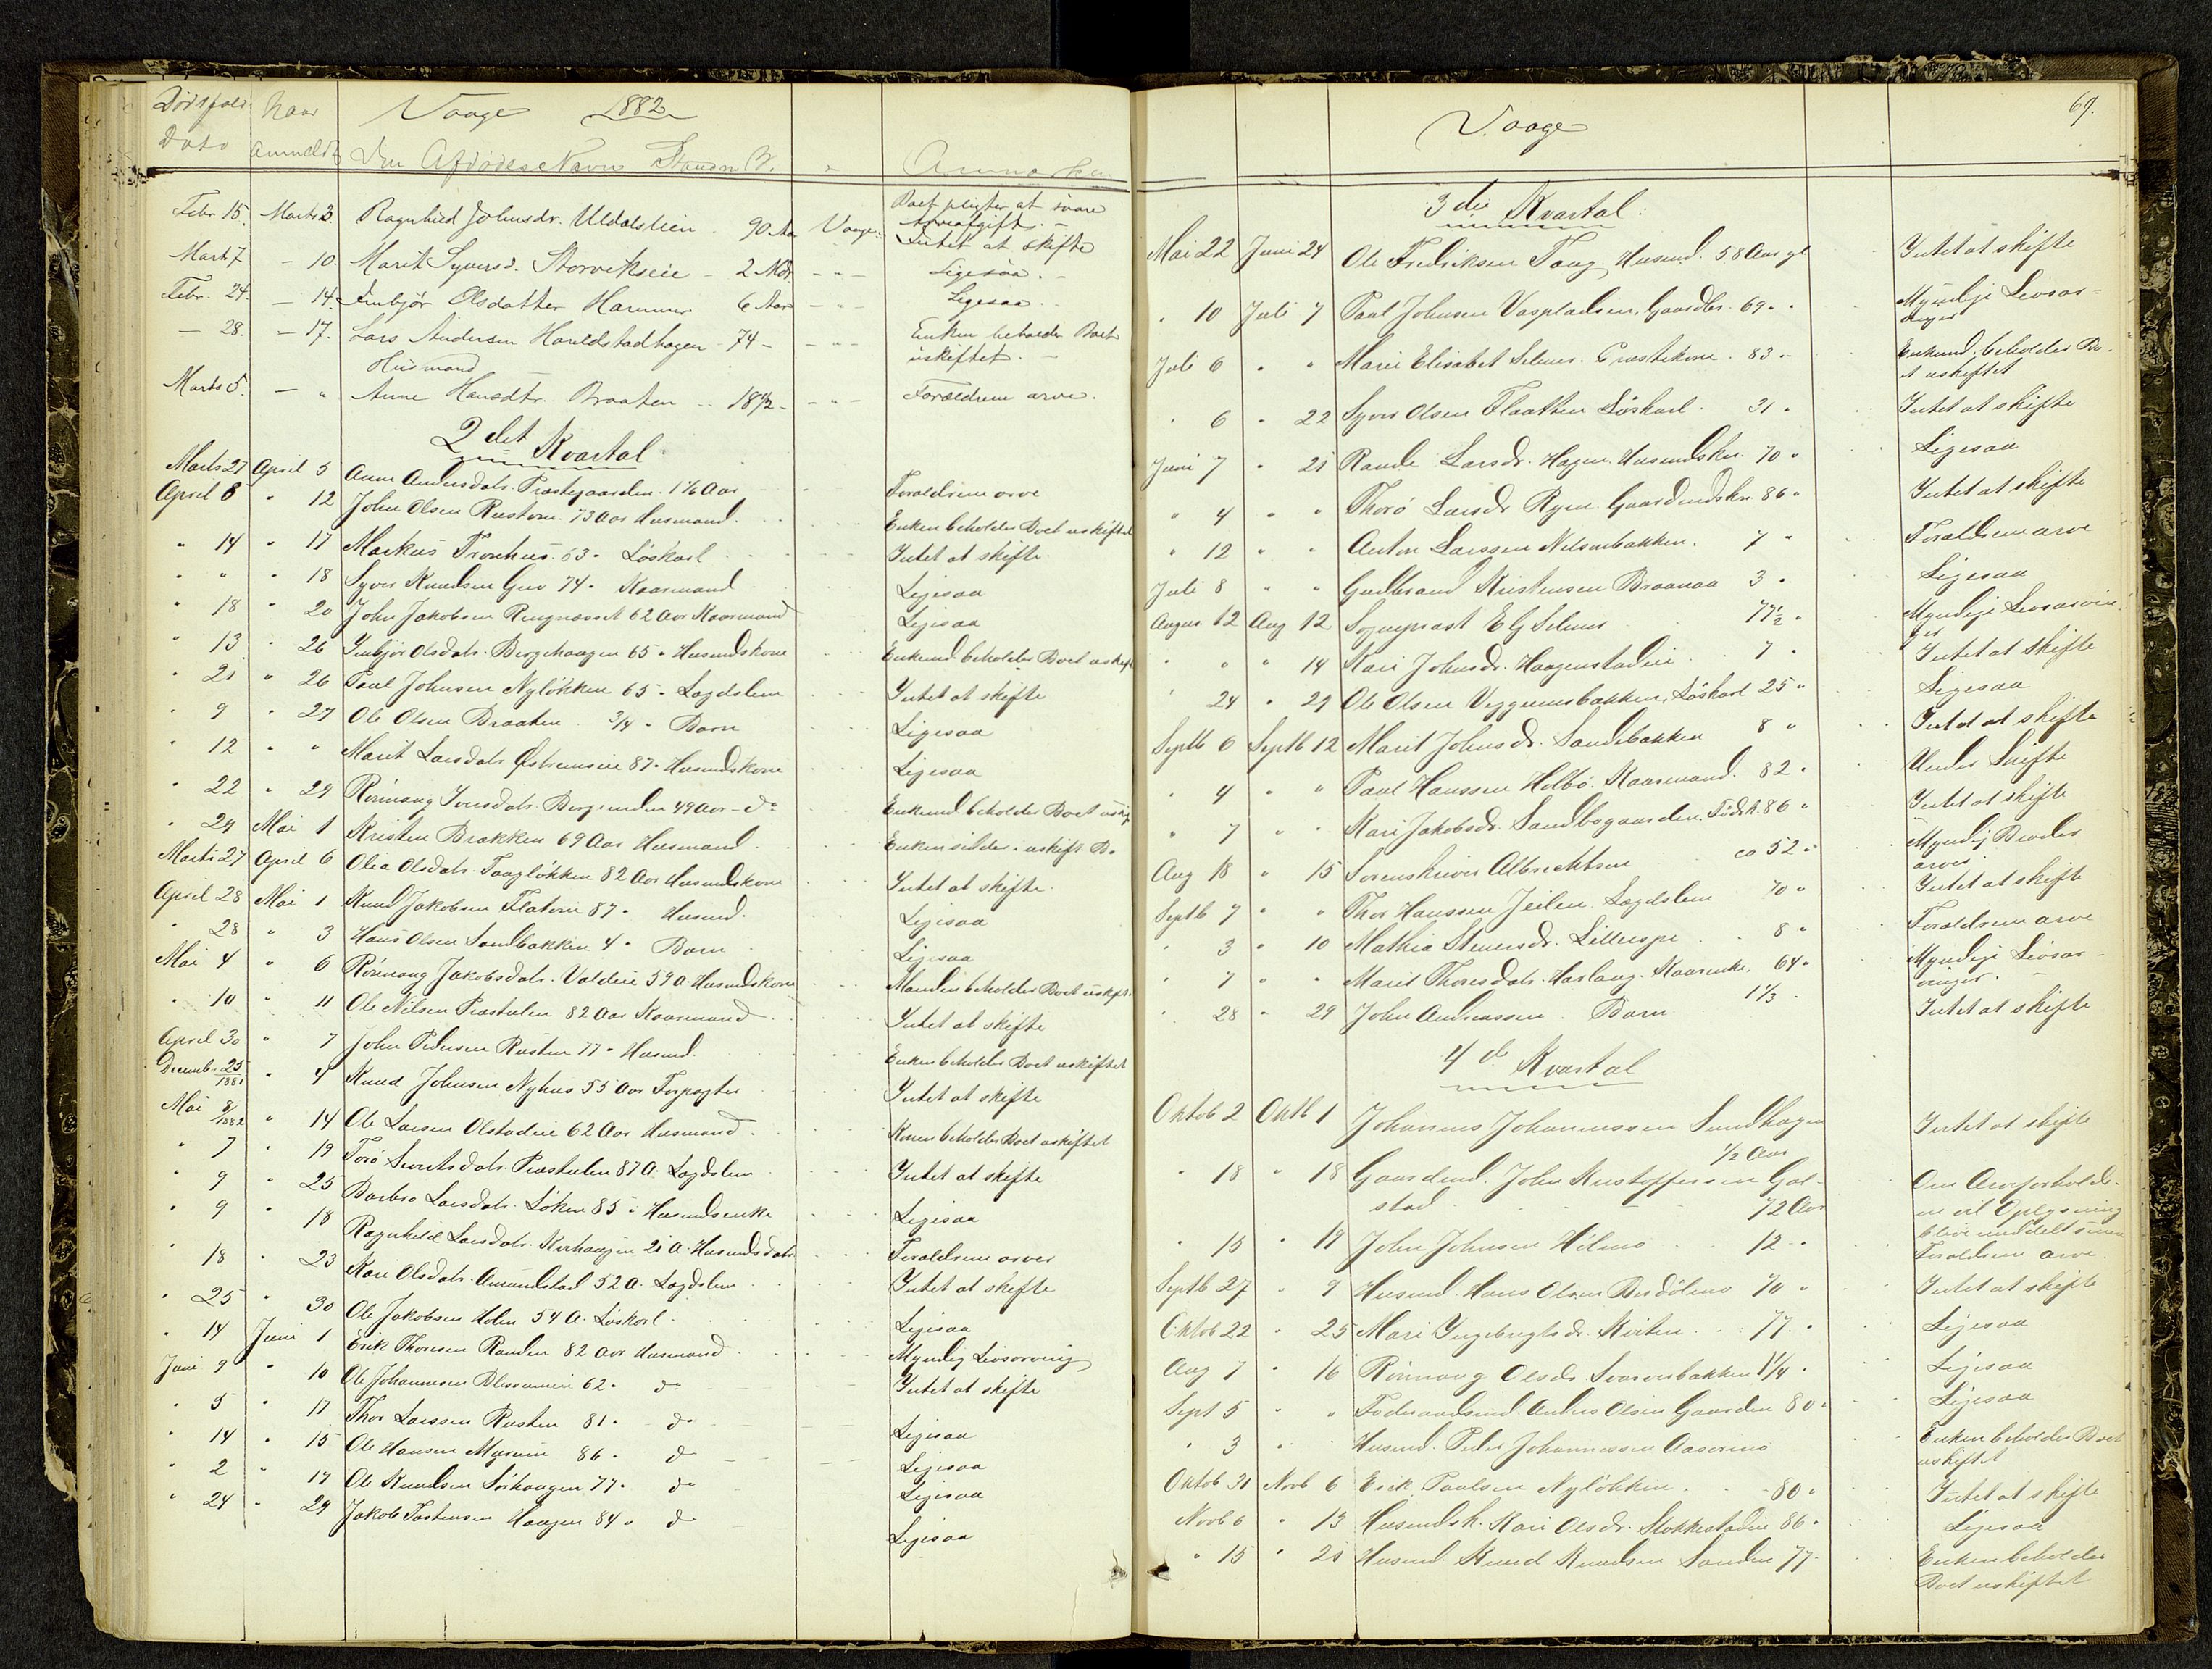 Dødsfald Naar Vaage 1882
Dato anmeldt Den Afdødes Navn Stand m. V. Anmærkn
Febr 15. Marts 3. Ragnhild Johnsdr. Uldalslien 90 Aar Vaage. Boet pligter at svare Arveafgift. –
Mart 7 – 10. Marit Syversd. Storvikseie – 2 Mdr. – Intet at skifte
Febr. 24. – 14. Imbjør Olsdatter Hammer 6 Aar – Ligesaa. –
Ligesaa. –
– 28. – 17. Lars Andersen Haraldstadhagen – 74 – Enken beholder Boet
Husmand uskiftet. –
Marts 5. – " Anne Hansdtr. Braaten – 18 1/2 – Forældrene arve.
2det Kvartal.
Marts 27 April 5 Anne Andersdatr. Præstegaarden. 1 1/6 Aar Forældrene arve
April 8 " 12 John Olsen Rusten. 73 Aar Husmand. Enken beholder Boet uskiftet
" 14 " 17 Markus Tronhus. 63 " Løskarl Intet at skifte
" " " 18 Syver Knudsen Grev 74 " Kaarmand Ligesaa
" 18 " 20 John Jakobsen Ringnæsset 62 Aar Kaarmand Ligesaa
" 13 " 26 Imbjør Olsdatr. Bergehaugen 65 " Husmdskone Enkemd. beholder Boet uskift
" 21 " 26 Paul Johnsen Nyløkken 65 " Lægdslem Intet at skifte
" 9 " 27 Ole Olsen Braaten 3/4 " Barn Ligesaa
" 12 " " Marit Larsdatr. Østremseie 87 " Husmdskone Ligesaa
" 22 " 29 Rønnaug Iversdatr. Bergsenden 49 Aar – do Enkemd. beholder Boet uskif
" 24 Mai 1 Kristen Brækken 69 Aar Husmand Enken sidder i uskift. Bo
Marts 27 April 6 Olia Olsdatr. Taagløkken 82 Aar Husmdskone Intet at skifte.
April 28 Mai 1 Knud Jakobsen Flatøien 87 " Husmd. Ligesaa
" 28 " 3 Hans Olsen Sandbakken 4 " Barn Ligesaa
Mai 4 " 6 Rønnaug Jakobsdatr. Valdeie 59 A. Husmdskone Manden beholder Boet uskift.
" 10 " 11 Ole Nilsen Præstulen 82 Aar Kaarmand Intet at skifte
April 30 " 7 John Pedersen Rusten 77 " Husmd. Enken beholder Boet uskiftet
Decembr. 25/1881 " 4 Knud Johnsen Nyhus 55 Aar Forpagter Intet at skifte
Mai 8/1882 " 14 Ole Larsen Olstadeie 62 Aar Husmand Konen beholder Boet uskiftet
" 7 " 19 Torø Sivertsdatr. Præstulen 87 A. Lægdslem Intet at skifte
" 9 " 25 Barbro Larsdatr. Løken 85 " Husmdsenke Ligesaa
" 9 " 18 Ragnhild Larsdatr. Kirkhaugen 21 A. Husmdsdatr. Forældrene arver
" 18 " 23 Kari Olsdatr. Amundstad 52 A. Lægdslem Intet at skifte
" 25 " 30 Ole Jakobsen Holen 54 A. Løskarl Ligesaa
" 14 Juni 1 Erik Thoresen Randen 82 Aar Husmand Myndig Livsarving
Juni 9 " 10 Ole Johannesen Blessumeie 62 " do Intet at skifte
" 5 " 17 Thor Larssen Rusten 81 " do Ligesaa
" 14 " 15 Ole Hansen 86 " do Ligesaa
" 2 " 17 Ole Knudsen Sørhaugen 77 " do Ligesaa
" 24 " 29 Jakob Tostensen Haugen 84 " do Ligesaa
Vaage 69.
3die Kvartal.
Mai 22 Juni 24 Ole Fredriksen Taag Husmd. 58 Aar gl Intet at skifte
" 10 Juli 7 Paul Johnsen Vaspladsen, Gaardbr. 69 " Myndige Livsar-
Juli 6 " " Marie Elisabet Selmer. Præstekone. 83 " Enkemd. beholder Bo-
et uskiftet
" 6 " 22 Syver Olsen Flaatten Løskarl 31 " Intet at skifte
Juni 7 " 21 Rande Larsdr. Hagen Husmdskn. 70 " Ligesaa
" 4 " " Thorø Larsdr Ryen Gaardmdskn. 86 " Intet at skifte
" 12 " " Anton Larssen Nilsenbakken. 7 " Forældrene arve
Juli 8 " " Gudbrand Kristensen Braanaa 3 " Ligesaa
August 12 Aug 12 Sognepræst Ely Selmer 77 1/2 " Myndige Livsarvin-
ger
" " " 14 Kari Johnsdr. Haagenstadeie 7 " Intet at skifte
" 24 " 29 Ole Olsen Veggumsbakken, Løskarl 25 " Ligesaa
Septb 6 Septb 12 Marit Johnsdr. Sandbakken 8 " Intet at skifte
" 4 " " Paul Hanssen Holbø. Kaarmand. 82 " Under Skifte
" 7 " " Kari Jakobsdr. Sandbogaarden. Fødk. 86 " Intet at skifte
Aug 18 " 15 Sorenskriver Albrechtsen ca 52 " Myndig Broder
arver
Septb 7 " " Thor Hanssen Jeilen Lægdslem 70 " Intet at skifte
" 3 " 10 Mathia Steinersdr. Lilleespe 8 " Forældrene arve
" 7 " " Marit Thoresdatr. Harlaug. Kaarenke. 64 " Myndige Livsar-
vinger.
" 28 " 29 John Andreassen. Barn 1 1/3 " Intet at skifte
4de Kvartal
Oktob 2 Oktb 1 Johannes Johannessen Sandhagen Intet at skifte
1/2 Aar
" 18 " 18 Gaardmd. John Kristoffersen Gol- Om Arveforholde-
stad 72 Aar ne vil Oplysning
blive meddelt senere
" 15 " 19 John Johnsen Hølmo 12 " Forældrene arve.
Septb 27 " 9 Husmd. Hans Olsen Bredølmo 70 " Intet at skifte
Oktob 22 " 25 Mari Ingebrigtsdr. Kviten 77 " Ligesaa
Aug 7 " 16 Rønnaug Olsdr. Svarverbakken 1 1/4 " Ligesaa
Sept 5 " " Føderaadsmd. Anders Olsen Gaarden 80 " Ligesaa
" 3 " Husmd. Peder Johannessen Aasoren Enken beholder Boet
uskiftet
Oktob 31 Novb 6 Erik Paulsen Nyløkken 80 " Intet at skifte
Novb 6 " 13 Husmdsk. Kari Olsdr. Stokkestadeie 86 " Ligesaa
" 15 " 21 Husmd. Knud Knudsen Sanden 77 Enken beholder
Boet uskiftet